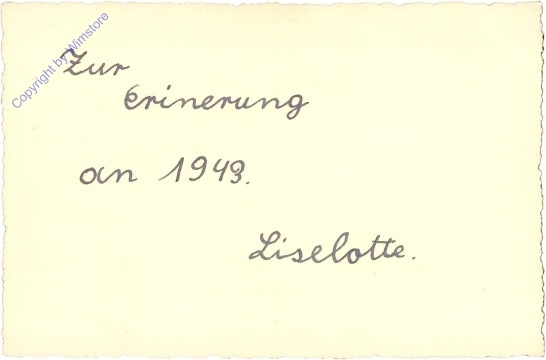 Copyright by Wimstore
Zur
Erinerung
an 1943.
Liselotte.